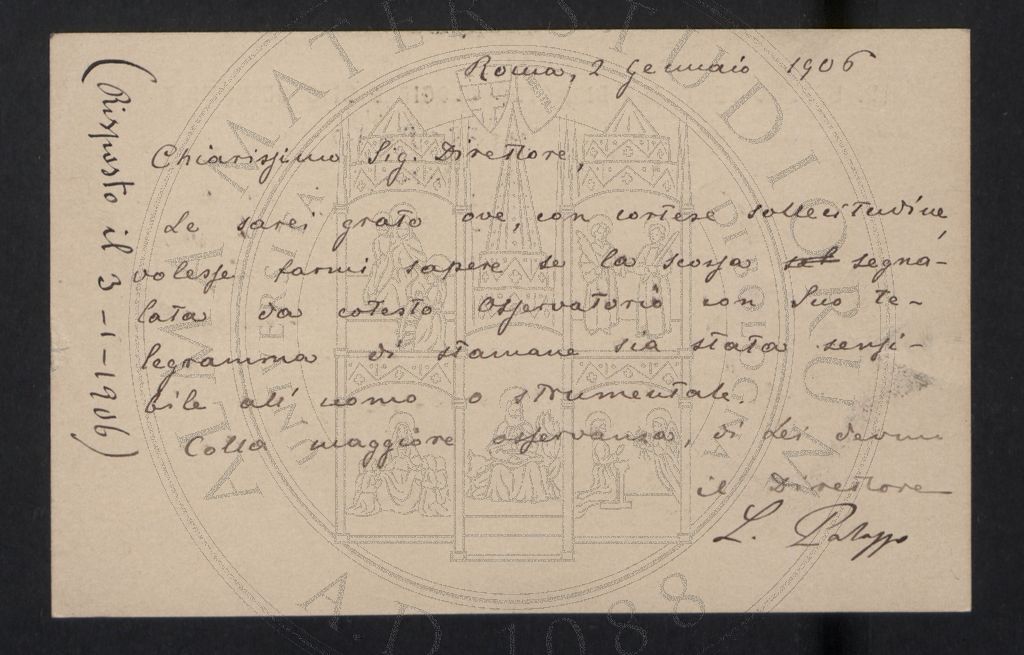 Roma, 2 Gennaio 1906
Chiarissimo Sig. Direttore,
Le sarei grato ove, con cortese sollecitudine,
volesse farmi sapere se la scossa segna-
lata da cotesto Osservatorio con Suo te-
legramma di stamane sia stata sensi-
bile all'uomo o strumentale.
Colla maggiore osservanza, di Lei devmo
il Direttore
L. Palazzo
(Risposto il 3-1-1906)
ALMA MATER STUDIORUM
A.D. 1088